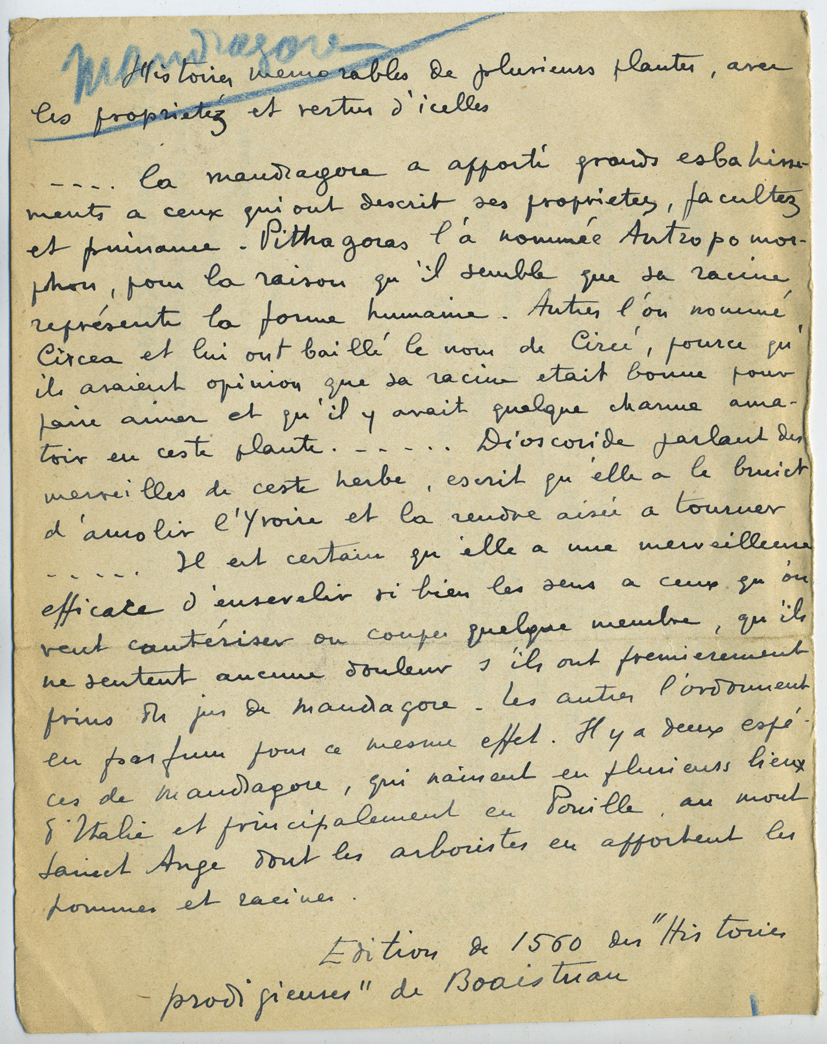 Mandragore
Histoires memorables de plusieurs plantes, avec
les proprietéz et vertus d'icelles
---- La mandragore a apporté grands esbahisse-
ments a ceux qui ont descrit ses proprietez, facultez
et puissance - Pithagoras l'a nommée Antropomor-
phon, pour la raison qu'il semble que sa racine
représente la forme humaine. Autres l'on nommé
Circea et lui ont baillé le nom de Circé, pource qu'
ils avaient opinion que sa racine etait bonne pour
faire aimer et qu'il y avait quelque charme ama-
toir en ceste plante. ----- Dioscoride parlant des
merveilles de ceste herbe, escrit qu'elle a le bruict
d'amolir l'Yvoire et la rendre aisée a tourner
----- Il est certain qu'elle a une merveilleuse
efficace d'ensevelir si bien les sens a ceux qu'on
veut cautériser ou couper quelque membre, qu'ils
ne sentent aucune douleur s'ils ont premierement
prins du jus de mandragore - Les autres l'ordonnent
en parfum pour ce mesme effet. Il y a deux espé-
ces de mandragore, qui naissent en plusieurs lieux
d'Italie et principalement en Pouille, au mont
Sainct Ange dont les arboristes en apportent les
pommes et racines.
Edition de 1560 des "Histoires
prodigieuses" de Boaistuau